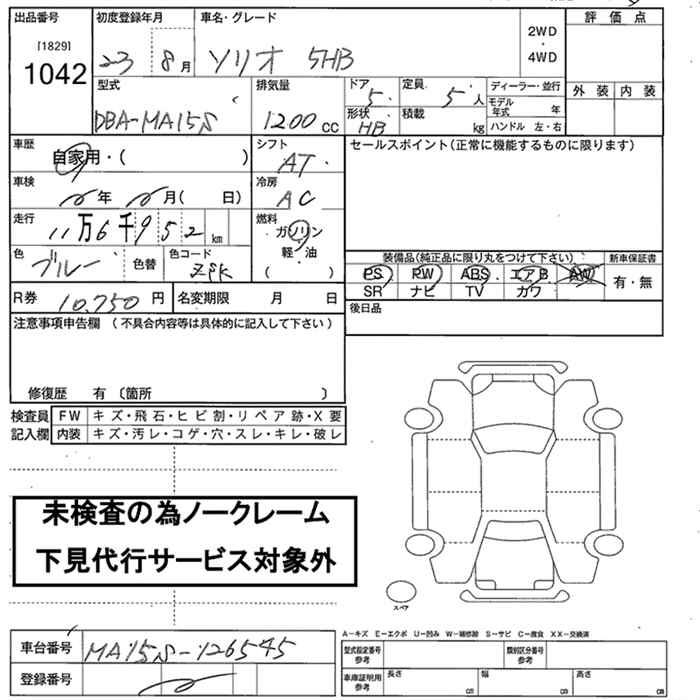 出品番号 初度登録年月 車名・グレード 評価点
[1829] 2WD
1042 23 8月 ソリオ 5HB ・
4WD
型式 排気量 ドア 定員 ディーラー・並行 外装 内装
5 5人 モデル年式 年
DBA-MA15S 1200cc 形状 HB 積載 kg ハンドル 左・右
車歴 自家用・( ) シフト AT セールスポイント(正常に機能するものに限ります)
車検 年 月( 日) 冷房 AC
走行 11万6千952km 燃料 ガソリン
軽・油
色 ブルー 色替 色コード ZPK ( ) 装備品(純正品に限り丸をつけて下さい) 新車保証書
PS PW ABS エアB AW 有・無
SR ナビ TV カワ
R券 10,750円 名変期限 月 日 後日品
注意事項申告欄(不具合内容等は具体的に記入して下さい)
修復歴 有 〔箇所 〕
検査員 FW キズ・飛石・ヒビ割・リペア跡・X要
記入欄 内装 キズ・汚レ・コゲ・穴・スレ・キレ・破レ
未検査の為ノークレーム
下見代行サービス対象外
スペア
A-キズ E-エクボ U-凹み W-補修跡 S-サビ C-腐食 XX-交換済
車台番号 MA15S-126545 型式指定番号 参考 類別区分番号 参考
登録番号 車庫証明用 参考 長さ cm 幅 cm 高さ cm